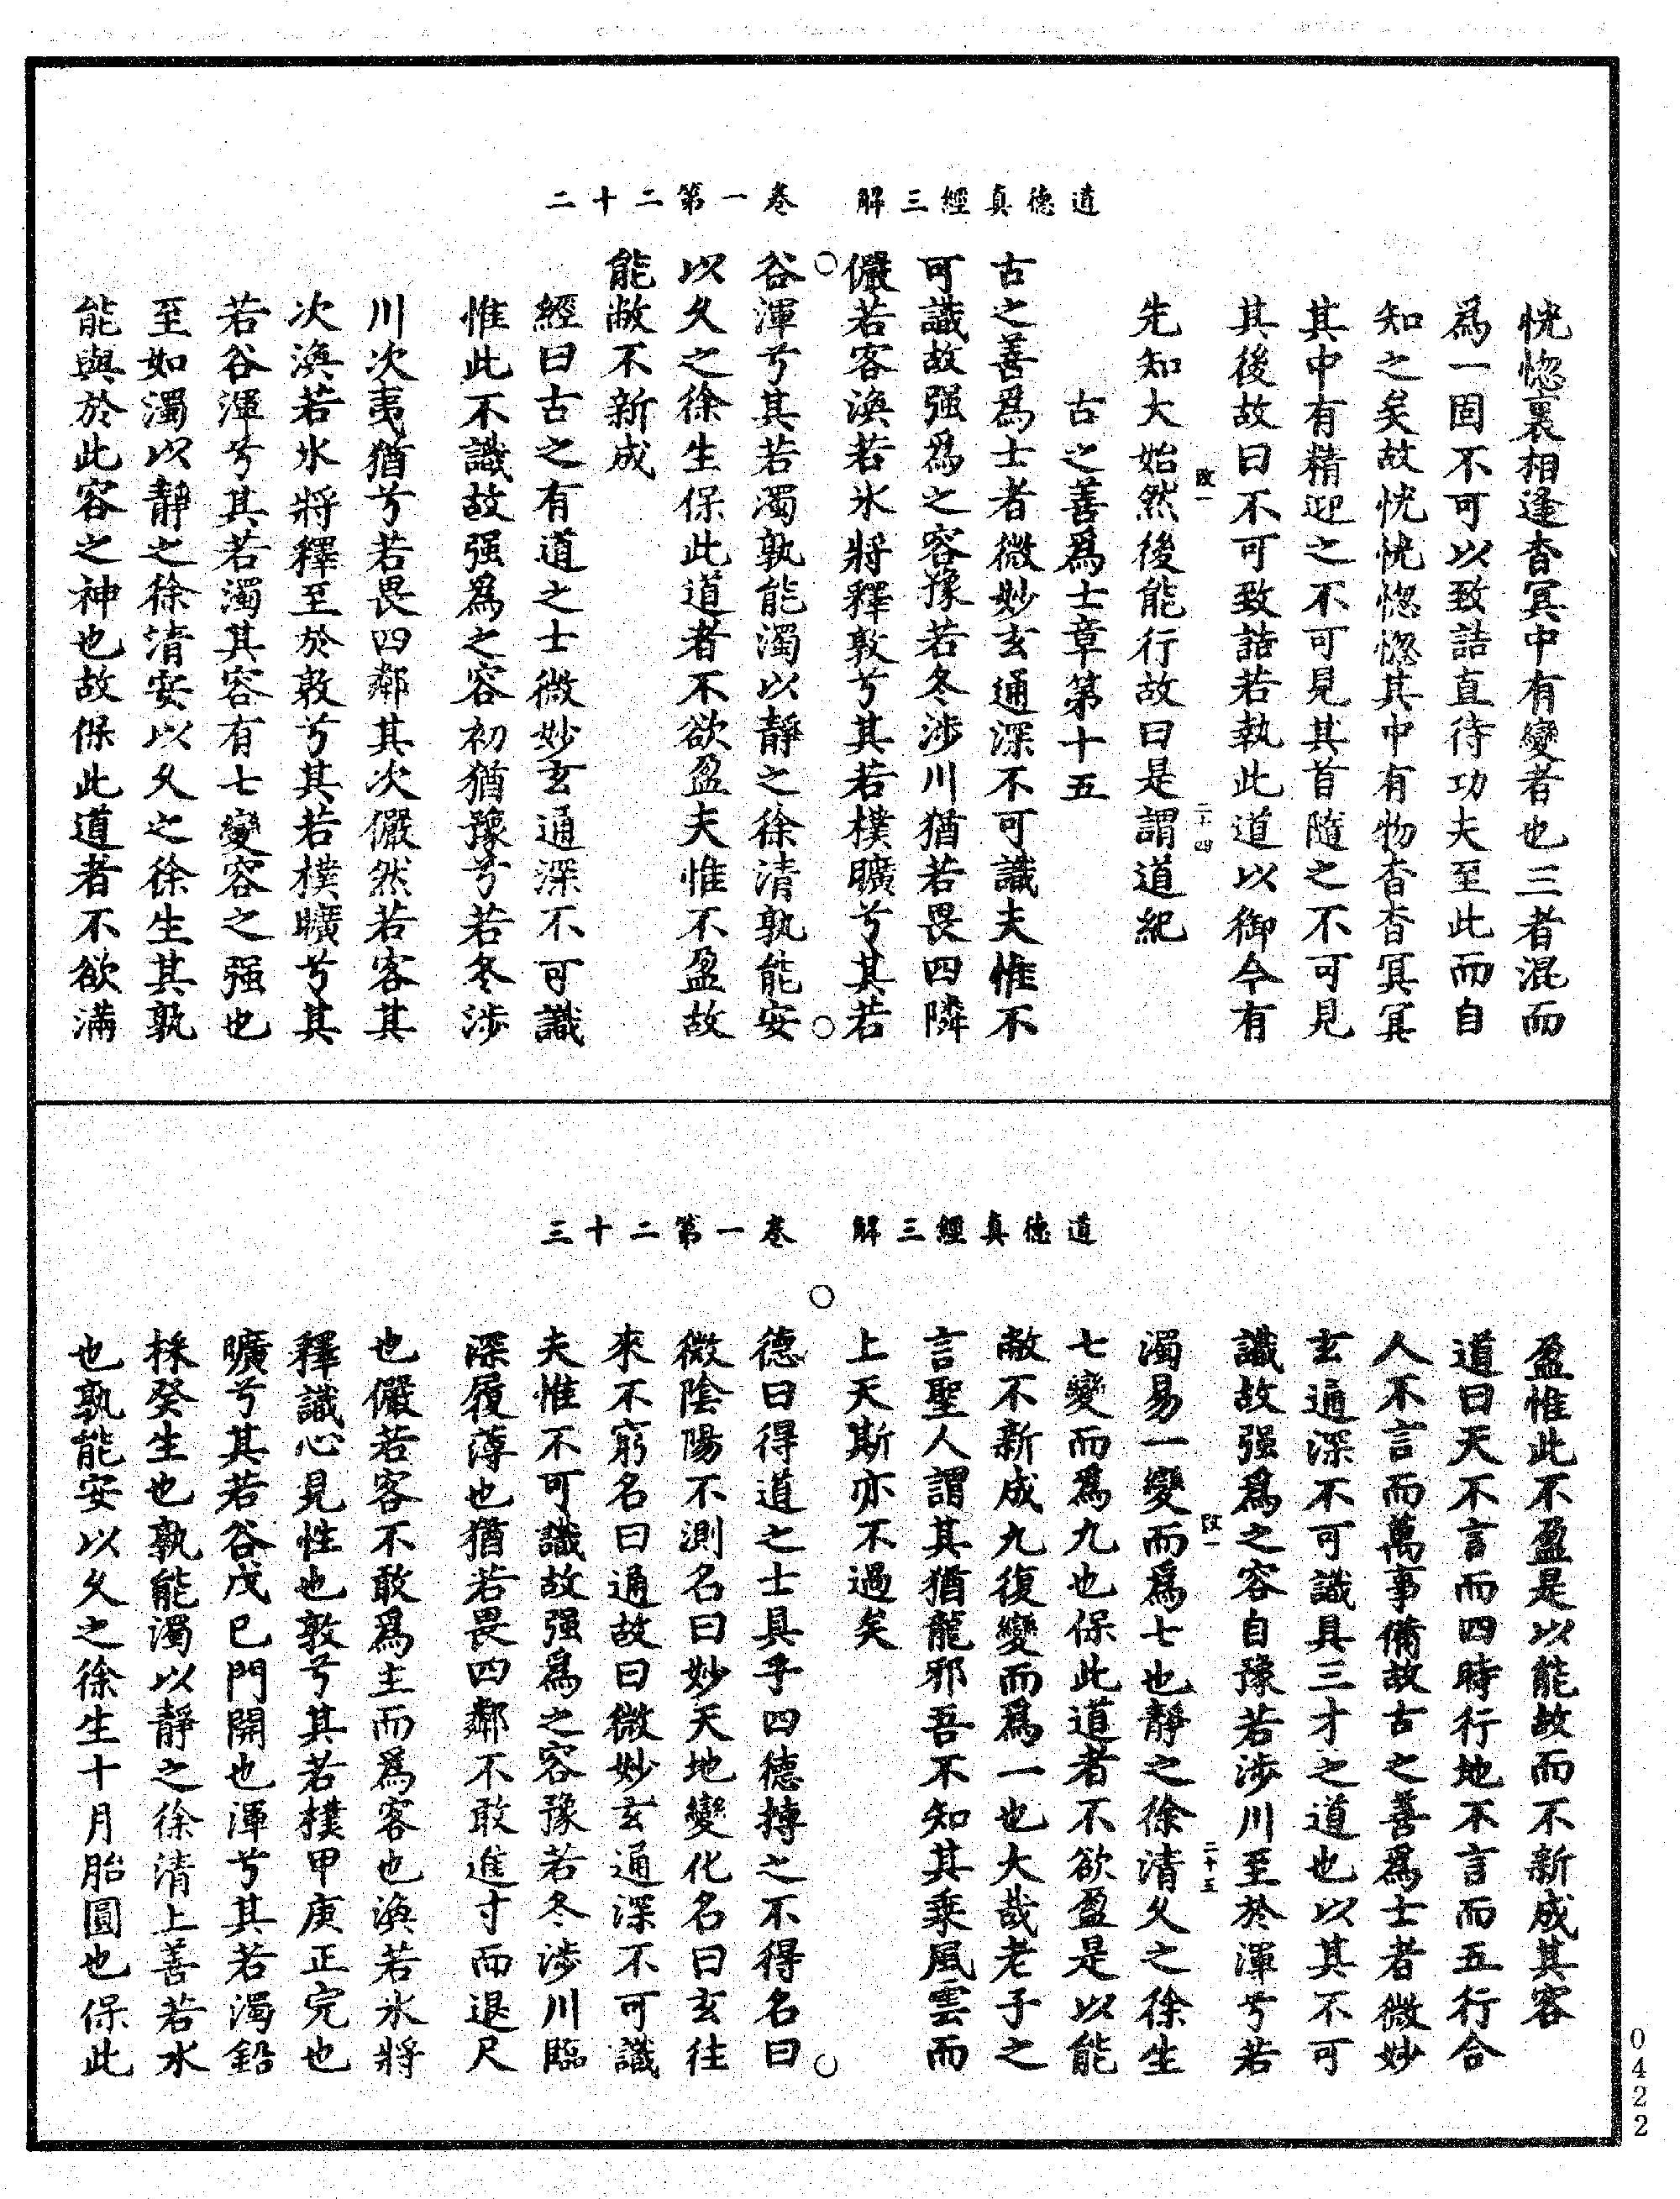 道德真經三解　卷一第二十二
恍惚裏相逢杳冥中有變者也三者混而
爲一固不可以致詰直待功夫至此而自
知之矣故恍恍惚惚其中有物杳杳冥冥
其中有精迎之不可見其首隨之不可見
其後故曰不可致詰若執此道以御今有
改一　二十四
先知大始然後能行故曰是謂道紀
古之善爲士章第十五
古之善爲士者微妙玄通深不可識夫惟不
可識故强爲之容豫若冬涉川猶若畏四隣
儼若客渙若氷將釋敦兮其若樸曠兮其若
谷渾兮其若濁孰能濁以靜之徐清孰能安
以久之徐生保此道者不欲盈夫惟不盈故
能敝不新成
經曰古之有道之士微妙玄通深不可識
惟此不識故强爲之容初猶豫兮若冬涉
川次夷猶兮若畏四鄰其次儼然若客其
次渙若氷將釋至於敦兮其若樸曠兮其
若谷渾兮其若濁其容有七變容之强也
至如濁以靜之徐清安以久之徐生其孰
能與於此容之神也故保此道者不欲滿
道德真經三解　卷一第二十三
盈惟此不盈是以能故而不新成其容
道曰天不言而四時行地不言而五行合
人不言而萬事備故古之善爲士者微妙
玄通深不可識具三才之道也以其不可
識故强爲之容自豫若涉川至於渾兮若
改一　二十五
濁易一變而爲七也靜之徐清久之徐生
七變而爲九也保此道者不欲盈是以能
敝不新成九復變而爲一也大哉老子之
言聖人謂其猶龍邪吾不知其乘風雲而
上天斯亦不過矣
德曰得道之士具乎四德摶之不得名曰
微陰陽不測名曰妙天地變化名曰玄往
來不窮名曰通故曰微妙玄通深不可識
夫惟不可識故强爲之容豫若冬涉川臨
深履薄也猶若畏四鄰不敢進寸而退尺
也儼若客不敢爲主而爲客也渙若氷將
釋識心見性也敦兮其若樸甲庚正完也
曠兮其若谷戊已門開也渾兮其若濁鉛
採癸生也孰能濁以靜之徐清上善若水
也孰能安以久之徐生十月胎圓也保此
0422